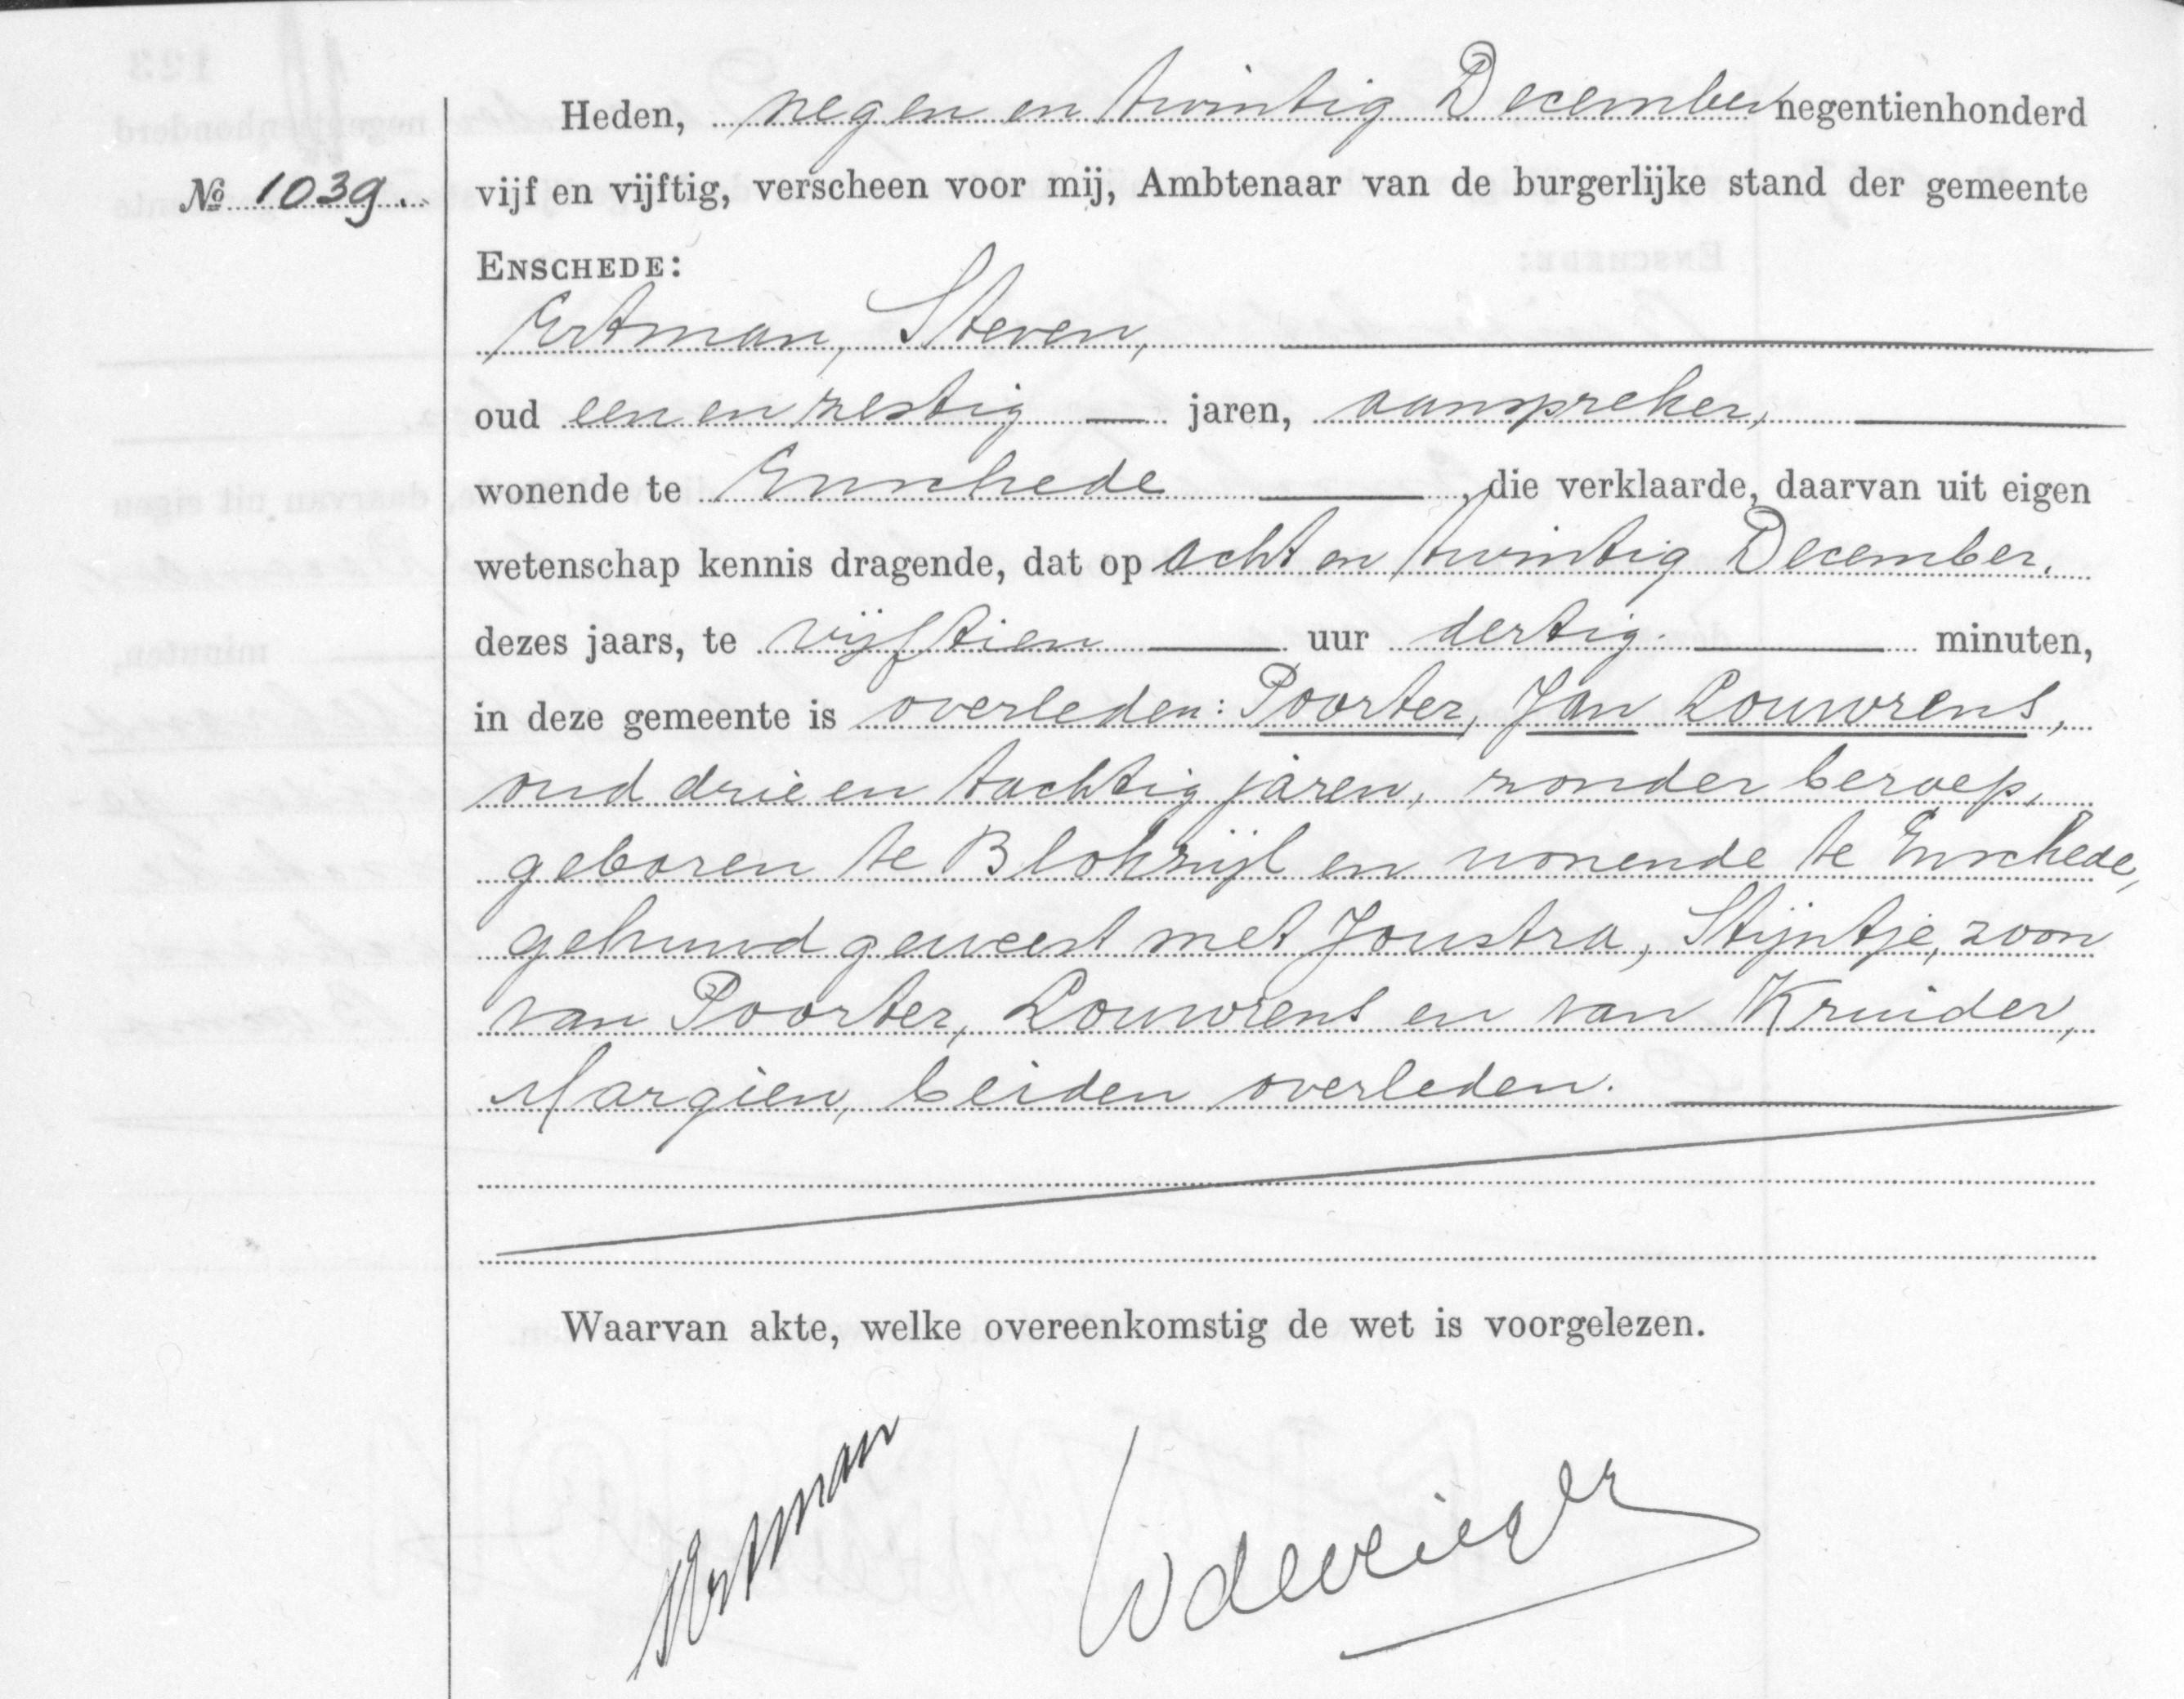 Heden, negen en twintig December negentienhonderd
№ 1039. vijf en vijftig, verscheen voor mij, Ambtenaar van de burgerlijke stand der gemeente
ENSCHEDE:
Ertman, Steven,
oud een en zestig jaren, aanspreker,
wonende te Enschede, die verklaarde, daarvan uit eigen
wetenschap kennis dragende, dat op acht en twintig December.
dezes jaars, te vijftien uur dertig. minuten,
in deze gemeente is overleden: Poorter, Jan Louwrens,
oud drie en tachtig jaren, zonder beroep,
geboren te Blokzijl en wonende te Enschede,
gehuwd geweest met Joustra, Stijntje, zoon
van Poorter, Louwrens en van Kruider,
Margien, beiden overleden.
Waarvan akte, welke overeenkomstig de wet is voorgelezen.
SErtman